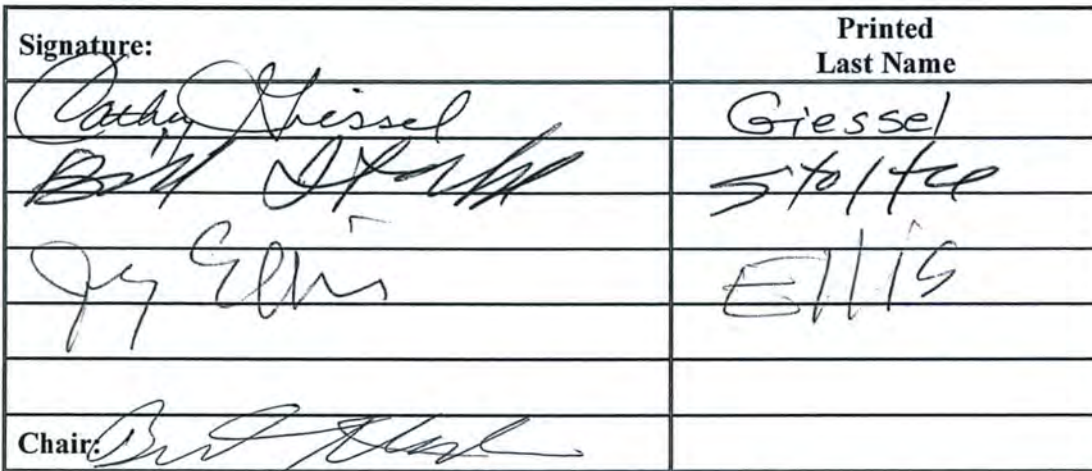 Signature: Printed
Last Name
Cathy Giessel Giessel
Bill Stoltze Stoltze
Ellis Ellis
Chair: Bert